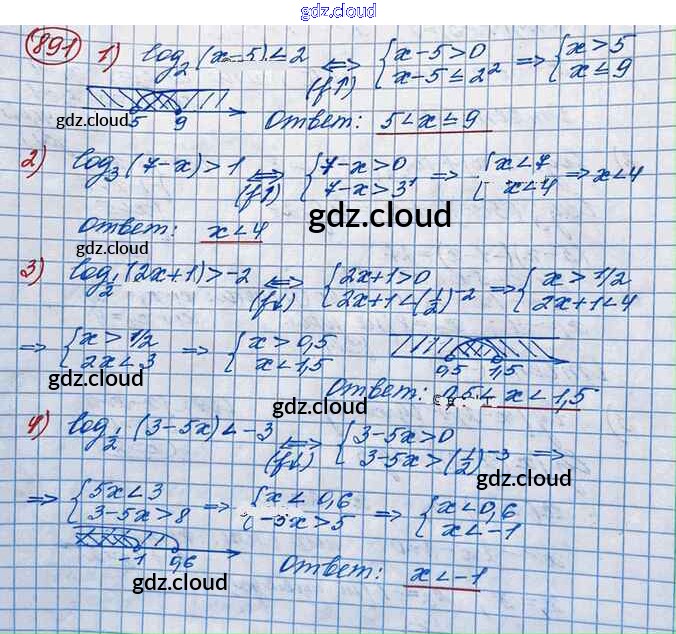 gdz.cloud
gdz.cloud
891 1) log₂(x-5)≤2 ⟺ (f↑) {x-5>0 x-5≤2² ⇒ {x>5 x≤9
gdz.cloud 5 9 Ответ: 5<x≤9
2) log₃(7-x)>1 ⟺ (f↑) {7-x>0 7-x>3¹ ⇒ {x<7 x<4 ⇒ x<4
gdz.cloud
Ответ: x<4
gdz.cloud
3) log_1/2 (2x+1)>-2 ⟺ (f↓) {2x+1>0 2x+1<(1/2)⁻² ⇒ {x>1/2 2x+1<4
⇒ {x>1/2 2x<3 ⇒ {x>0,5 x<1,5 0,5 1,5
gdz.cloud
Ответ: 0,5<x<1,5
gdz.cloud
4) log_1/2 (3-5x)<-3 ⟺ (f↓) {3-5x>0 3-5x>(1/2)⁻³ ⇒
gdz.cloud
⇒ {5x<3 3-5x>8 ⇒ {x<0,6 -5x>5 ⇒ {x<0,6 x<-1
gdz.cloud
-1 0,6 Ответ: x<-1
gdz.cloud
gdz.cloud